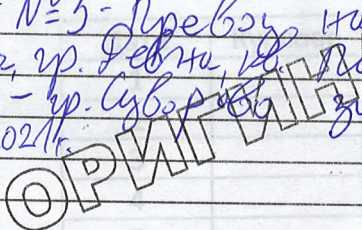 № 5 - Превоз на
гр. Девня, кв. По
- гр. Суворово за
021г.
ОРИГИН